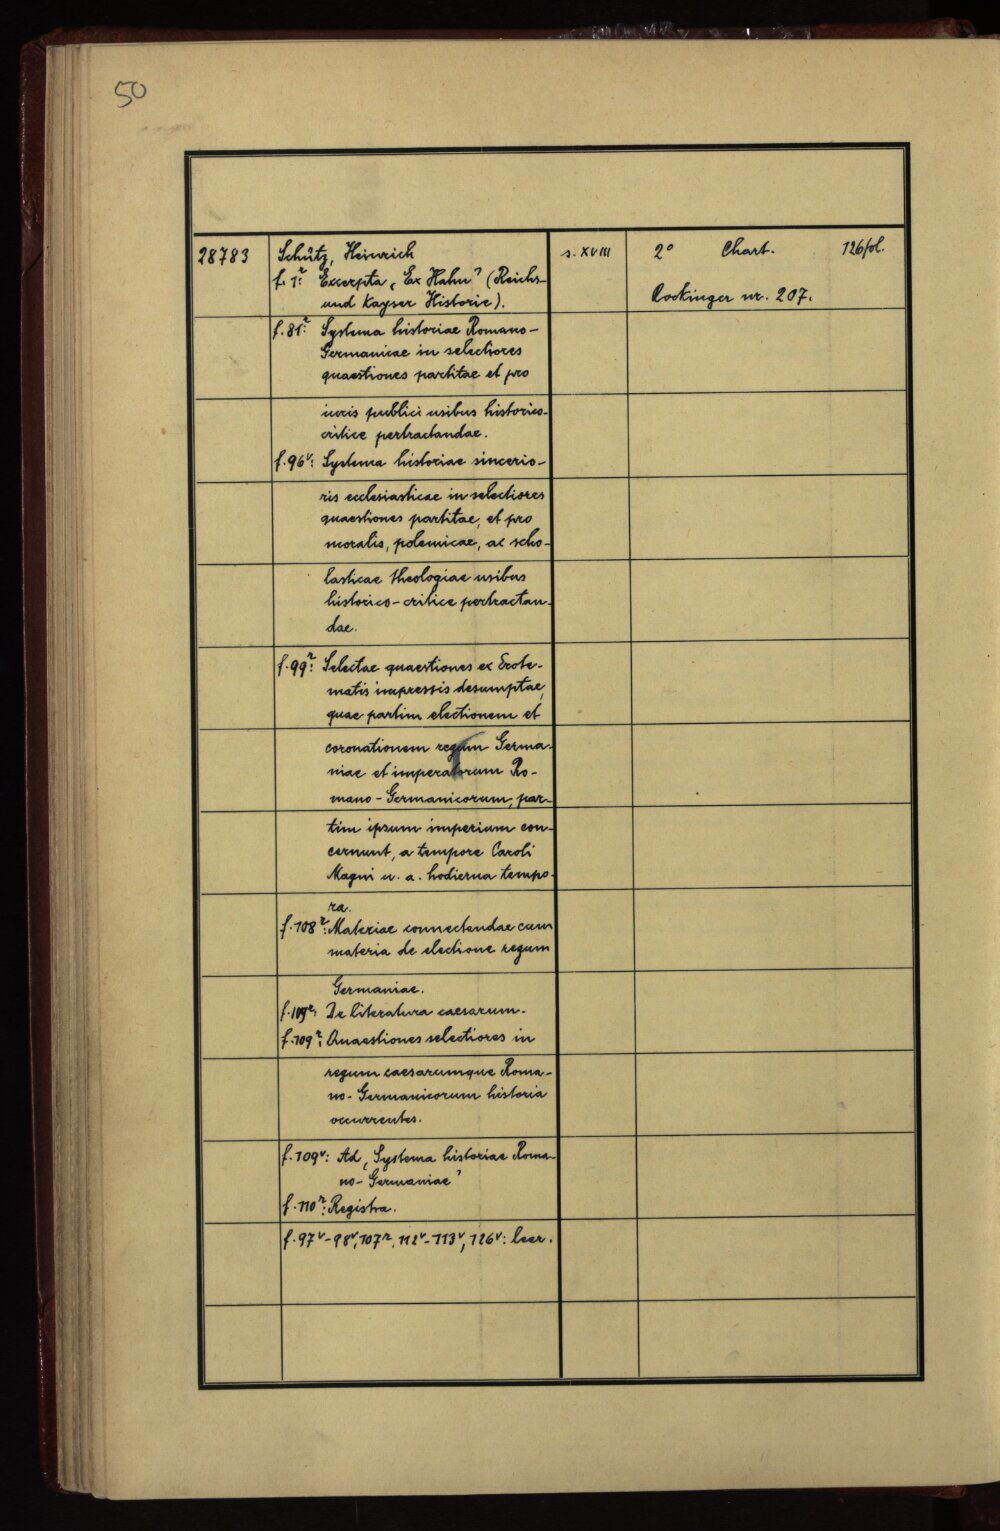 50
28783 Schütz, Heinrich s. XVIII 2° Chart. 126 fol.
f. 1r: Excerpta "Ex Hahn" (Reichs-
und Kayser Historie). Rockinger nr. 207.
f. 81r: Systema historiae Romano-
Germanicae in selectiores
quaestiones partitae et pro
iuris publici usibus historico-
critice pertractandae.
f. 96v: Systema historiae sincerio-
ris ecclesiasticae in selectiores
quaestiones partitae, et pro
moralis, polemicae, ac scho-
lasticae theologiae usibus
historico-critice pertractan-
dae.
f. 99r: Selectae quaestiones ex Erote-
matis impressis desumptae,
quae partim electionem et
coronationem regum Germa-
niae et imperatorum Ro-
mano-Germanicorum, par-
tim ipsum imperium con-
cernunt, a tempore Caroli
Magni u. a. hodierna tempo-
ra.
f. 108r: Materiae connectendae cum
materia de electione regum
Germaniae.
f. 109r: De literatura caesarum.
f. 109r: Quaestiones selectiores in
regum caesarumque Roma-
no-Germanicorum historia
occurrentes.
f. 109v: Ad "Systema historiae Roma-
no-Germaniae"
f. 110r: Registra.
f. 97v-98v, 107r, 112v-113v, 126v: leer.